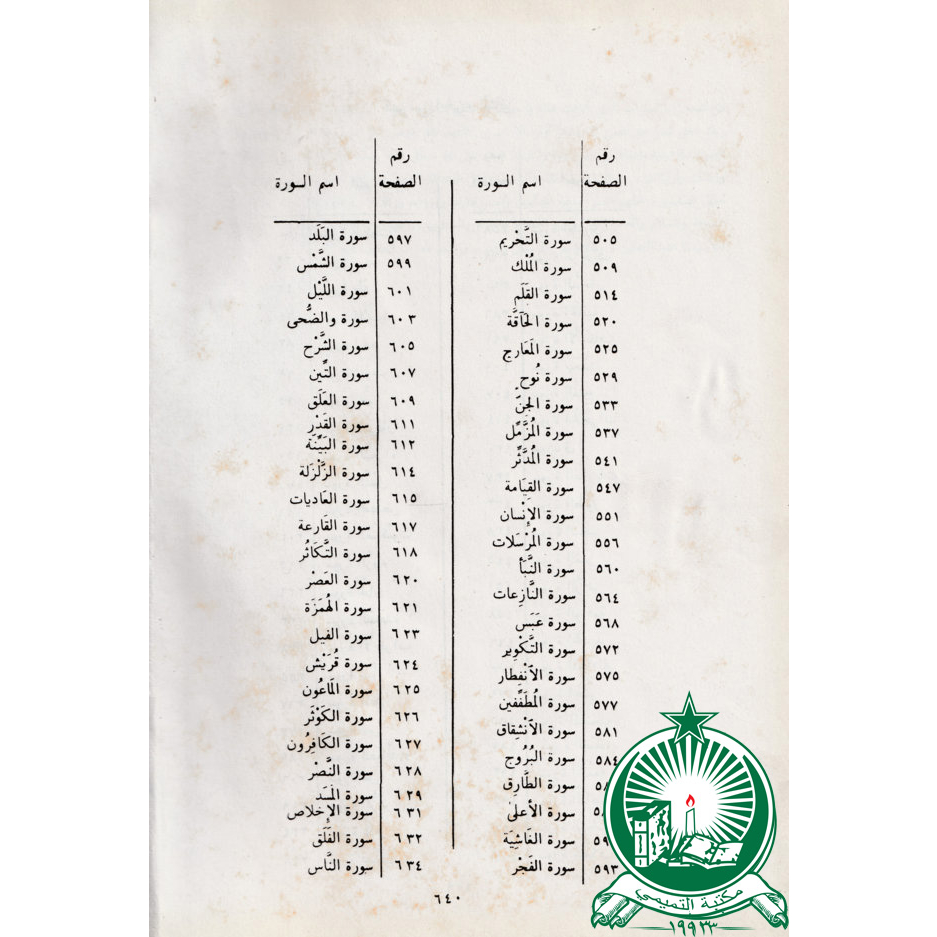 رقم
الصفحة اسم السورة
٥٠٥ سورة التَّحْريم
٥٠٩ سورة المُلْك
٥١٤ سورة القَلَم
٥٢٠ سورة الحَآقَّة
٥٢٥ سورة المَعَارج
٥٢٩ سورة نُوح
٥٣٣ سورة الجنّ
٥٣٧ سورة المُزَّمِّل
٥٤١ سورة المُدَّثِّر
٥٤٧ سورة القِيَامة
٥٥١ سورة الإِنْسان
٥٥٦ سورة المُرْسَلات
٥٦٠ سورة النَّبَأ
٥٦٤ سورة النَّازِعات
٥٦٨ سورة عَبَس
٥٧٢ سورة التَّكْوير
٥٧٥ سورة الاَنْفِطار
٥٧٧ سورة المُطَفِّفين
٥٨١ سورة الاَنْشِقاق
٥٨٤ سورة البُرُوج
سورة الطَّارِق
سورة الأعلىٰ
سورة الغَاشِيَة
٥٩٣ سورة الفَجْر
رقم
الصفحة اسم السورة
٥٩٧ سورة البَلَد
٥٩٩ سورة الشَّمْس
٦٠١ سورة اللَّيْل
٦٠٣ سورة والضُّحى
٦٠٥ سورة الشَّرْح
٦٠٧ سورة التِّين
٦٠٩ سورة العَلَق
٦١١ سورة القَدْرِ
٦١٢ سورة البَيِّنَة
٦١٤ سورة الزَّلْزَلة
٦١٥ سورة العَاديات
٦١٧ سورة القَارعة
٦١٨ سورة التَّكَاثُر
٦٢٠ سورة العَصْر
٦٢١ سورة الهُمَزَة
٦٢٣ سورة الفيل
٦٢٤ سورة قُرَيْش
٦٢٥ سورة المَاعُون
٦٢٦ سورة الكَوْثَر
٦٢٧ سورة الكَافِرُون
٦٢٨ سورة النَّصْر
٦٢٩ سورة المَسَد
٦٣١ سورة الإِخلاص
٦٣٢ سورة الفَلَق
٦٣٤ سورة النَّاس
٦٤٠
مكتبة التميمي